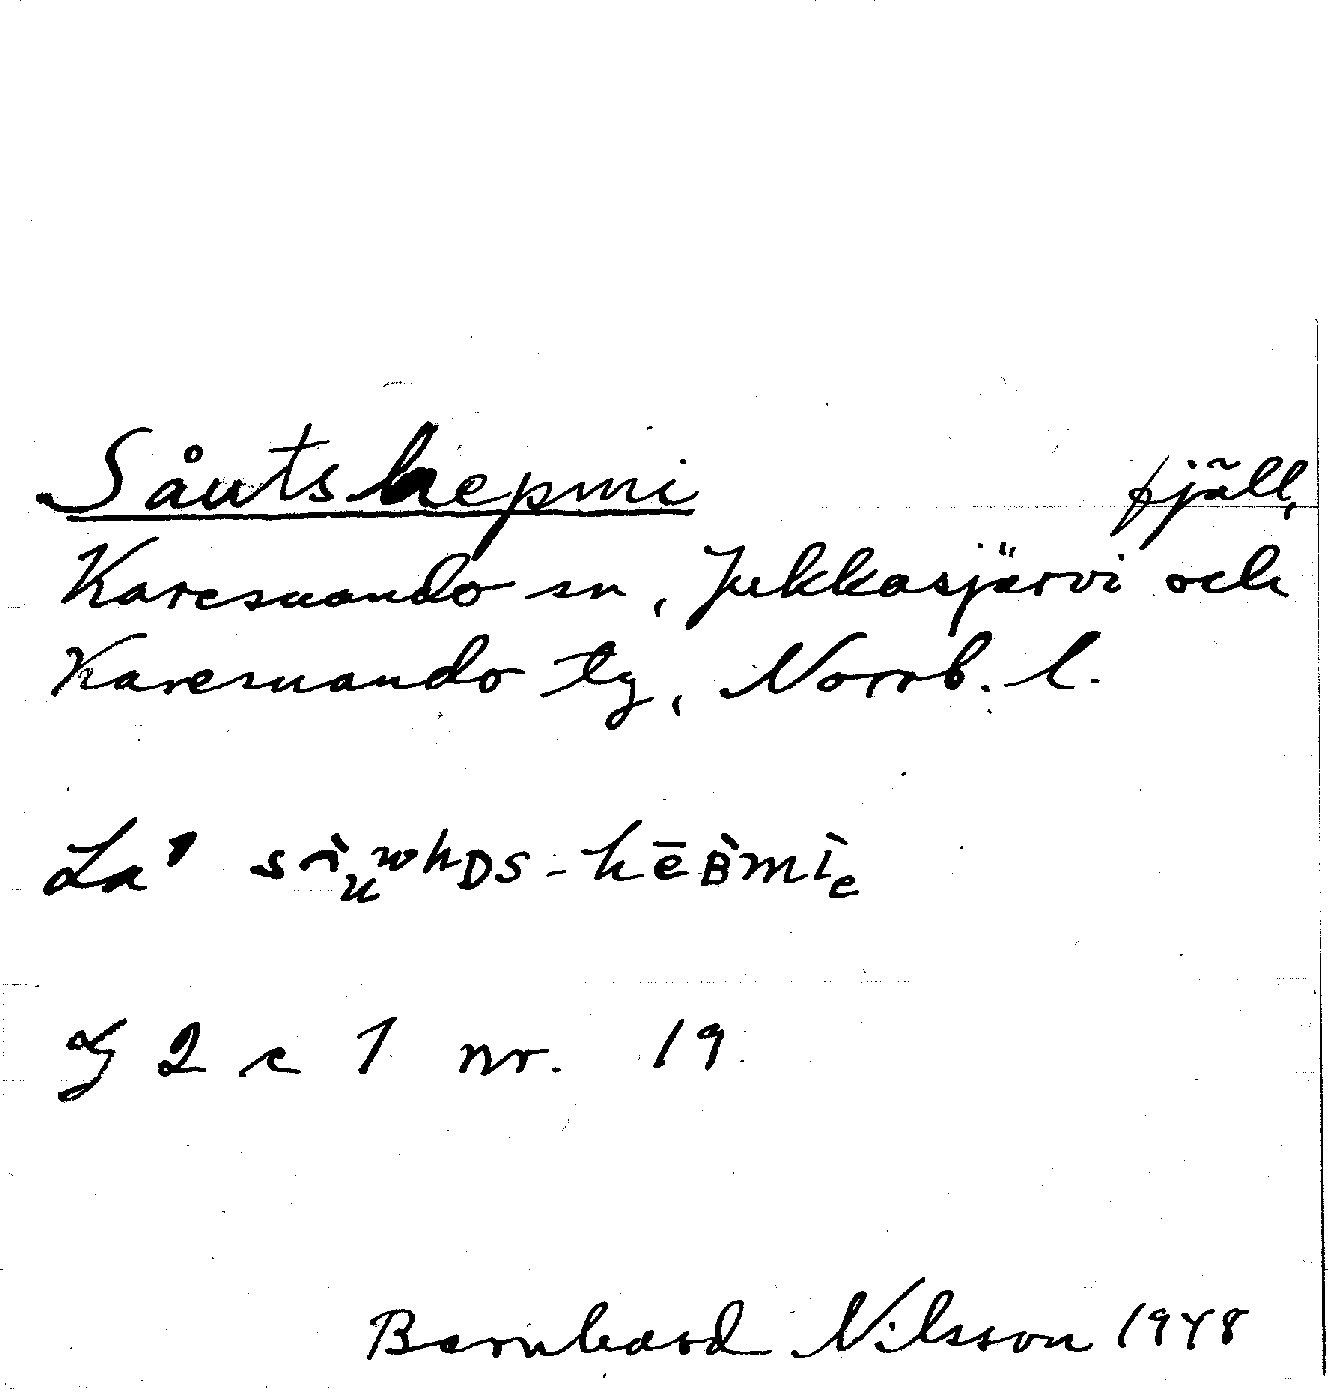 Såutshepmi fjäll,
Karesuando sn, Jukkasjärvi och
Karesuando tg, Norrb. l.
La'
G 2 c 1 nr. 19
Barnhard Nilsson 1948